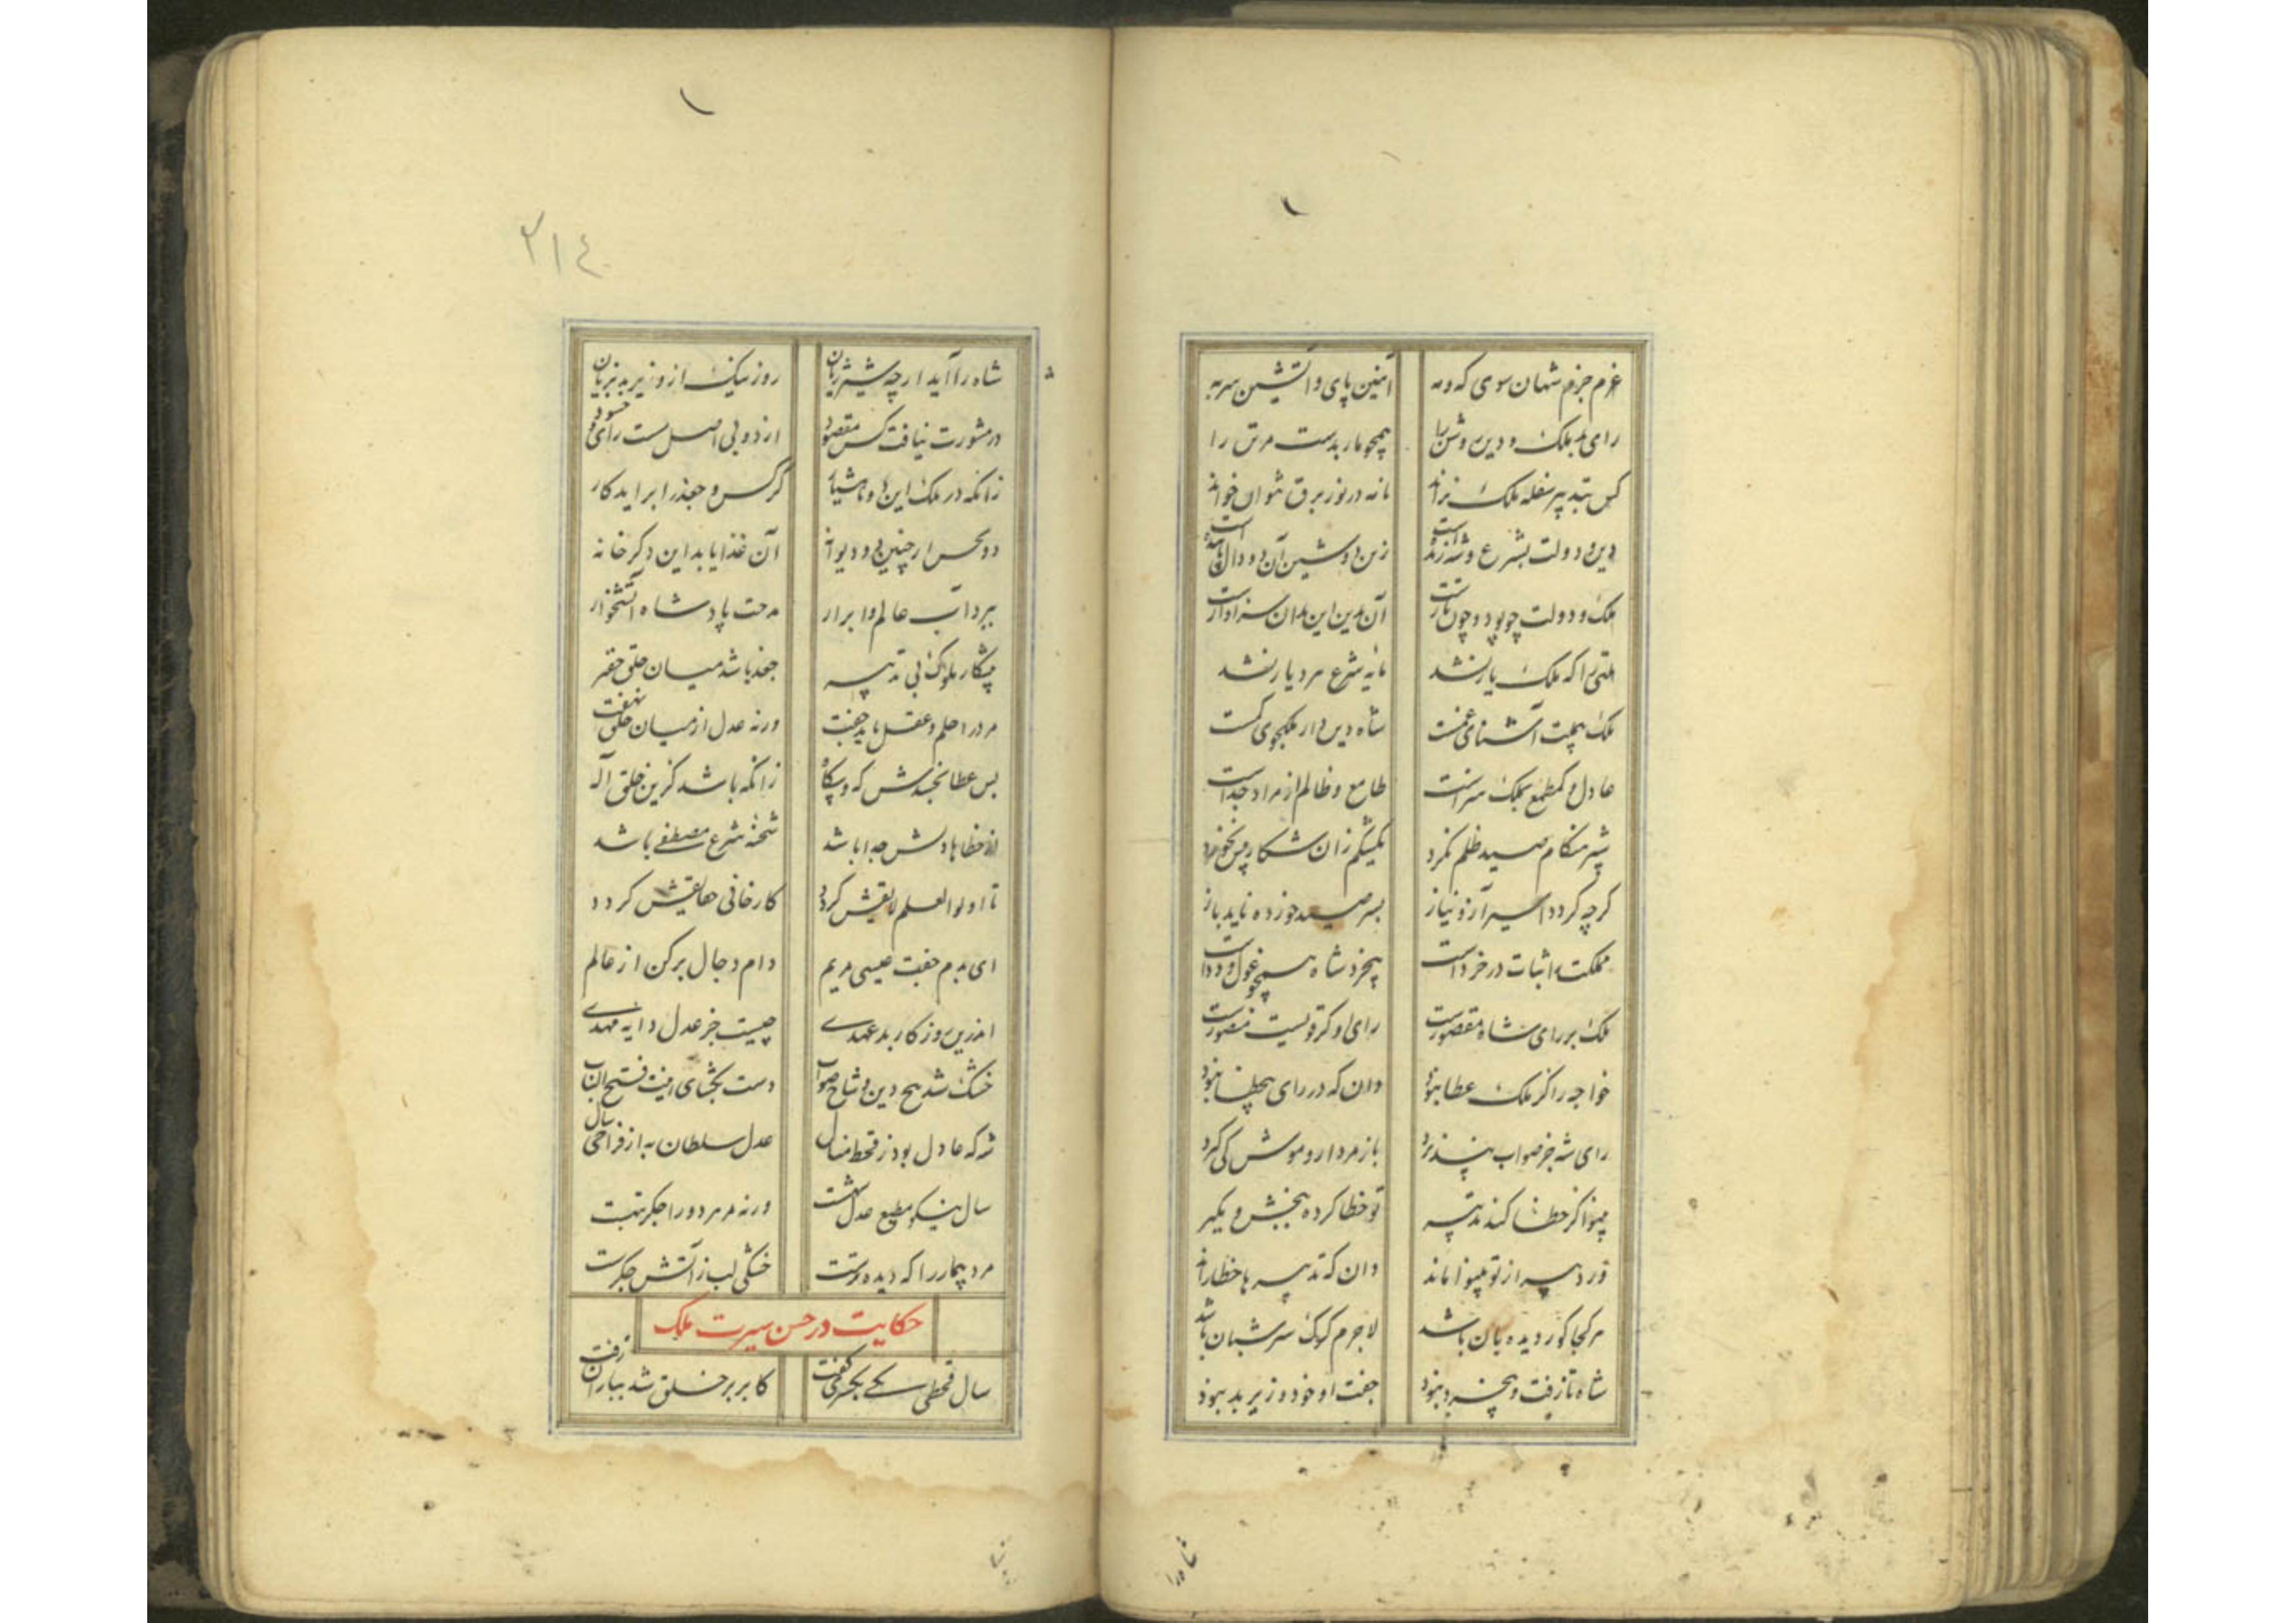 عزم جزم شهان سوی که و مه
آهنین پای و آتشین سر به
رای بد ملک و دین روشن را
همچو مار بدست مر تن را
کس بتدبیر سفله ملک نراند
نامه در نور برق نتوان خواند
دین و دولت بشرع و شه زنده است
زین دو شین آن دو دال پاینده است
ملک و دولت چو پود و چون تارست
آن بدین این بدان سزاوارست
ملتی را که ملک یار نشد
مایه شرع مرد یار نشد
شاه دین دار ملکجوی
عادل و کم طمع بملک سزاست
طامع و ظالم از مراد جداست
شیر هنگام صید ظلم نکرد
یک شکم زان شکار بیش نخورد
گرچه گردد اسیر آز و نیاز
بسر صید خورده ناید باز
مملکت را ثبات در خردست
بیخرد شاه همچو غول و ددست
ملک بر رای شاه مقصورست
رای او گر قویست منصورست
خواجه را گر ملک عطا نبود
دان که در رای بی خطا نبود
رای شه جز صواب نپذیرد
باز مردار و موش کی گیرد
بینوا گر خطا کند تدبیر
تو خطا کرده ببخش و مگیر
ور دبیر از تو بینوا ماند
دان که تدبیر با خطا راند
هر کجا کور دیده بان باشد
لاجرم گرگ سر شبان باشد
شاه تا زفت و بیخرد نبود
جفت او خود وزیر بد نبود
شاه را آید ار چه شیر ژیان
روز نیک از وزیر بد بزیان
در مشورت نیافت کس مقصود
از دو بی اصل سست رای و حسود
زانکه در ملک این ها و ناهشیار
کرکس و جغد را بر آید کار
دو نحس ار چنین دو دیوانه
آن غذا یابد این دگر خانه
ببرد آب عالم و ابرار
مدحت پادشاه آتشخوار
پیشکار ملوک بی تدبیر
جغد باشد میان خلق حقیر
مرد را حلم و عقل باید جفت
ورنه عدل از میان خلق نهفت
بس عطا بخشدش که و بیگاه
زانکه باشد گزین خلق اله
از خطاها دلش جدا باشد
شحنه شرع مصطفی باشد
تا اولوا العلم لایقش گردد
کار خانی حقایقش گردد
ای بدم جفت عیسی مریم
دام دجال برکن از عالم
اندرین روزگار بد عهدی
چیست جز عدل دایه مهدی
خشک شد بیخ دین و شاخ صواب
دست بگشای اینت فتح الباب
شه که عادل بود ز قحط منال
عدل سلطان به از فراخی سال
سال نیکو مطیع عدل شهست
ورنه مر مرد را جگر تبهست
مرد بیمار را که دیده ترست
خشکی لب ز آتش جگرست
حکایت در حسن سیرت ملک
سال قحطی یکی بکسری گفت
کابر بر خلق شد بباران زفت
۲۱٤